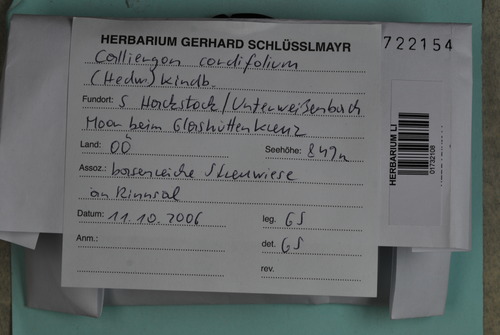 HERBARIUM GERHARD SCHLÜSSLMAYR
Calliergon cordifolium
(Hedw.) Kindb.
Fundort: S Hackstock/Unterweißenbach
Moor beim Glashüttenkreuz
Land: OÖ Seehöhe: 849m
Assoz.: basenreiche Streuwiese
an Rinnsal
Datum: 11.10.2006 leg. GS
Anm.: det. GS
rev.
722154
HERBARIUM LI